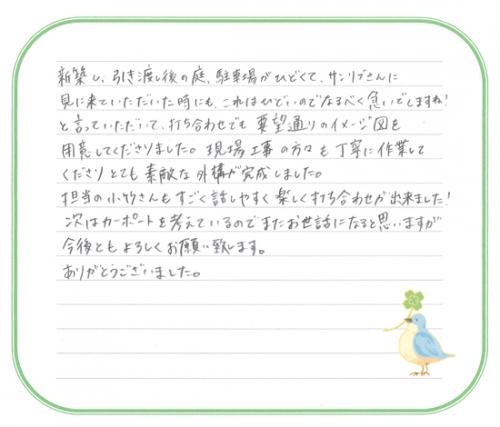 新築し、引き渡し後の庭、駐車場がひどくて、サンリブさんに
見に来ていただいた時にも、これはひどいのでなるべく急いでしますね!
と言っていただいて、打ち合わせでも要望通りのイメージ図を
用意してくださりました。現場工事の方々も丁寧に作業して
くださりとても素敵な外構が完成しました。
担当の小竹さんもすごく話しやすく楽しく打ち合わせが出来ました!
次はカーポートを考えているのでまたお世話になると思いますが
今後ともよろしくお願い致します。
ありがとうございました。